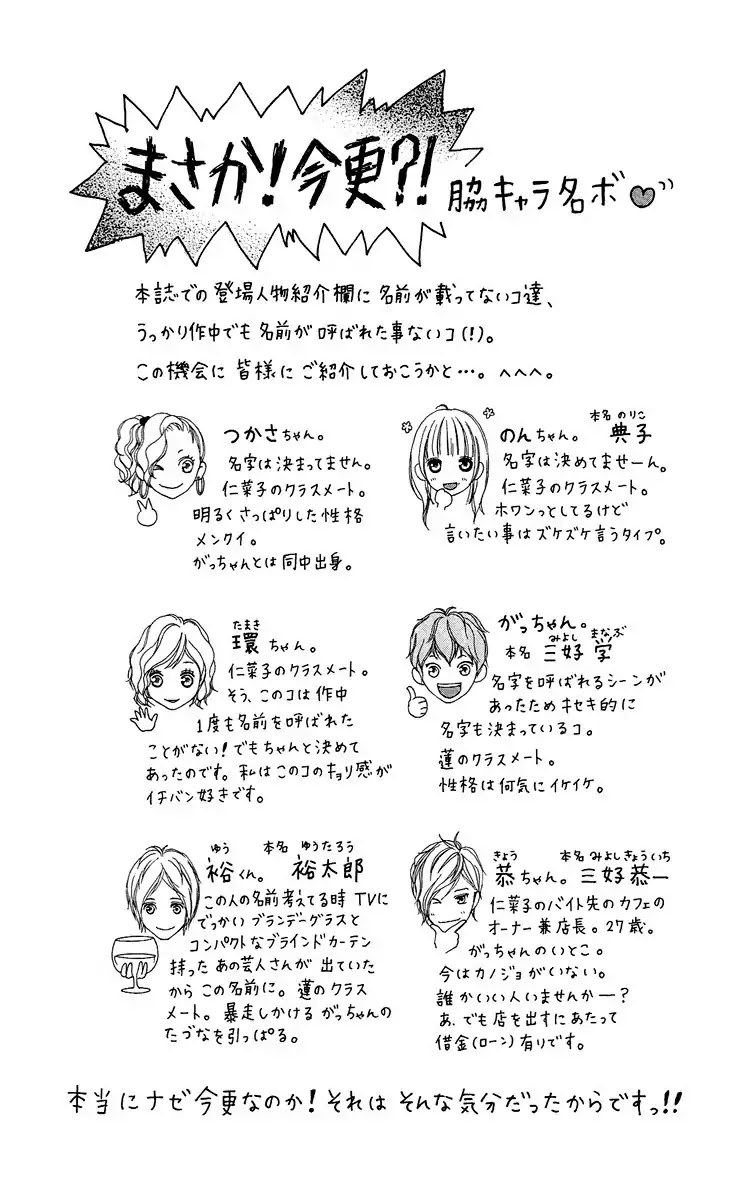 まさか!今更?!
脇キャラ名ボ♥
本誌での登場人物紹介欄に名前が載ってないコ達、
うっかり作中でも名前が呼ばれた事ないコ(!)。
この機会に皆様にご紹介しておこうかと…。へへへ。
つかさちゃん。
名字は決まってません。
仁菜子のクラスメート。
明るくさっぱりした性格
メンクイ。
がっちゃんとは同中出身。
本名 のりこ
のんちゃん。 典子
名字は決めてませーん。
仁菜子のクラスメート。
ホワンっとしてるけど
言いたい事はズケズケ言うタイプ。
たまき
環ちゃん。
仁菜子のクラスメート。
そう、このコは作中
1度も名前を呼ばれた
ことがない!でもちゃんと決めて
あったのです。私はこのコのキョリ感が
イチバン好きです。
がっちゃん。
みよし まなぶ
本名 三好 学
名字を呼ばれるシーンが
あったためキセキ的に
名字も決まっているコ。
蓮のクラスメート。
性格は何気にイケイケ。
ゆう 本名 ゆうたろう
裕くん。 裕太郎
この人の名前考えてる時TVに
でっかいブランデーグラスと
コンパクトなブラインドカーテン
持ったあの芸人さんが出ていた
からこの名前に。蓮のクラス
メート。暴走しかけるがっちゃんの
たづなを引っぱる。
きょう 本名 みよしきょういち
恭ちゃん。三好恭一
仁菜子のバイト先のカフェの
オーナー兼店長。27歳。
がっちゃんのいとこ。
今はカノジョがいない。
誰かいい人いませんかー?
あ、でも店を出すにあたって
借金(ローン)有りです。
本当にナゼ今更なのか!それはそんな気分だったからですっ!!